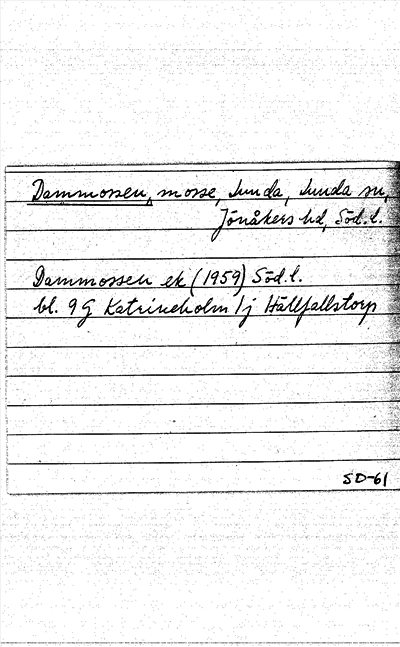 Dammossen, mosse, Lunda, Lunda sn,
Jönåkers hd, Söd.l.
Dammossen ek (1959) Söd.l.
bl. 9G Katrineholm 1j Hällfallstorp
SD-61